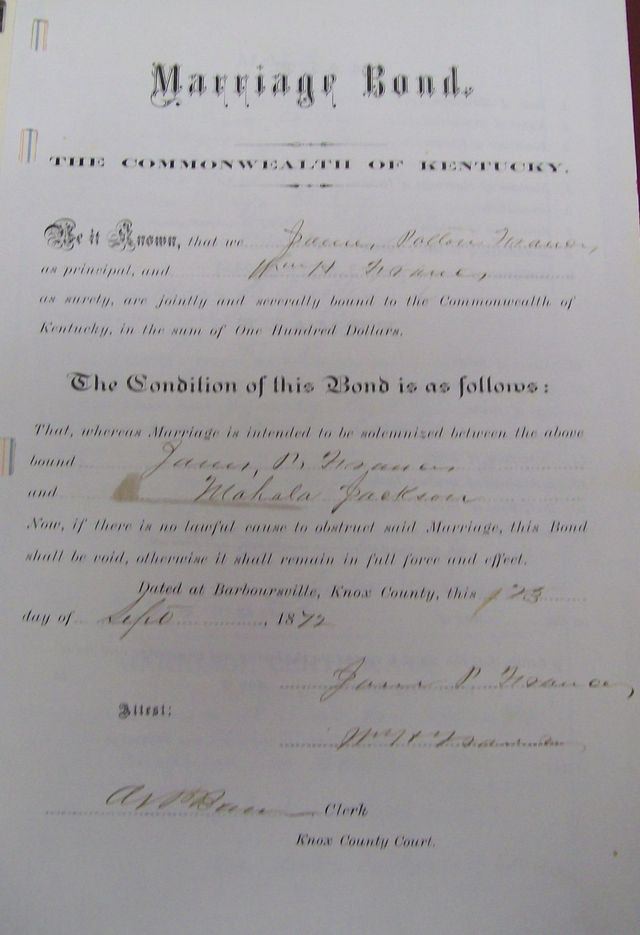 Marriage Bond.
THE COMMONWEALTH OF KENTUCKY.
Be it Known, that we James Patton Frances
as principal, and Wm H Frances
as surety, are jointly and severally bound to the Commonwealth of
Kentucky, in the sum of One Hundred Dollars.
The Condition of this Bond is as follows:
That, whereas Marriage is intended to be solemnized between the above
bound James P. Frances
and Mahala Jackson
Now, if there is no lawful cause to obstruct said Marriage, this Bond
shall be void, otherwise it shall remain in full force and effect.
Dated at Barboursville, Knox County, this 23
day of Sept, 1872
James P. Frances
Attest:
Wm H Frances
Clerk
Knox County Court.